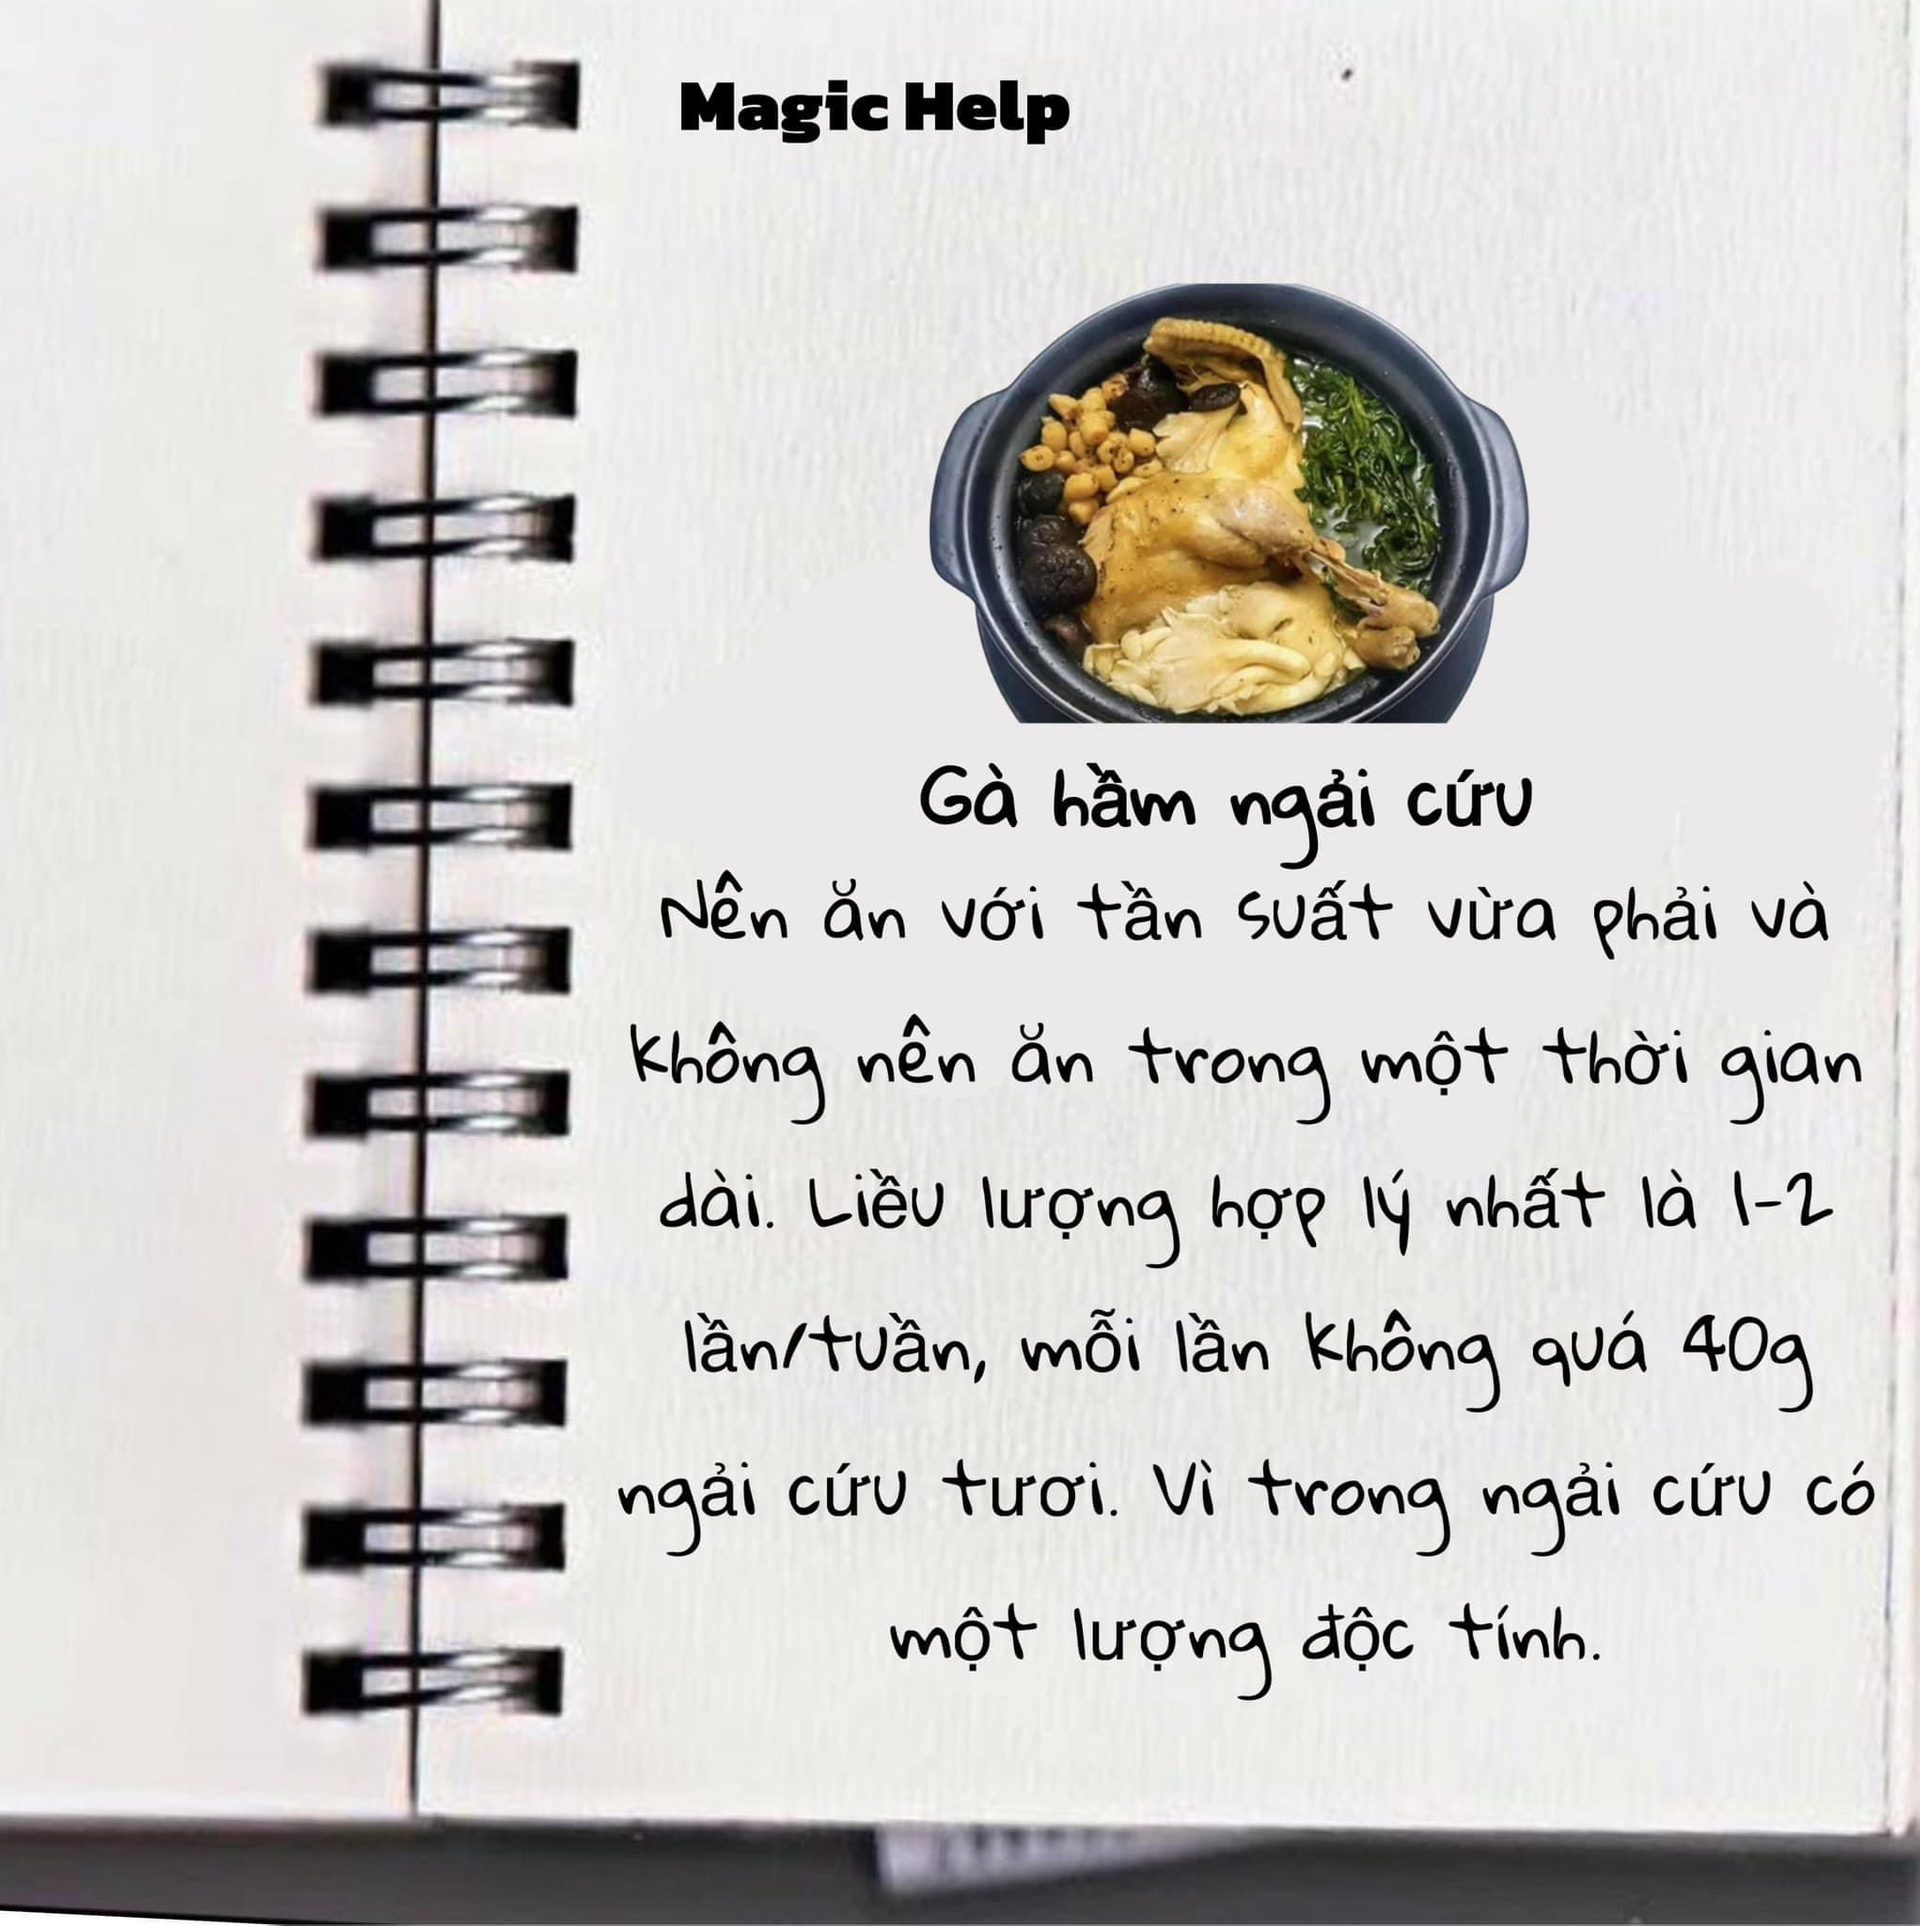 Magic Help
Gà hầm ngải cứu
Nên ăn với tần suất vừa phải và
không nên ăn trong một thời gian
dài. Liều lượng hợp lý nhất là 1-2
lần/tuần, mỗi lần không quá 40g
ngải cứu tươi. Vì trong ngải cứu có
một lượng độc tính.